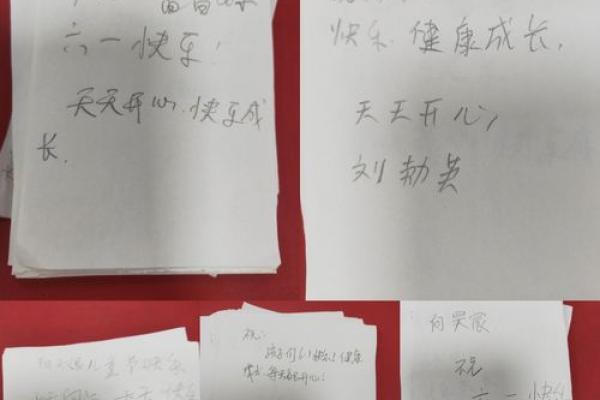 六一快乐!
天天开心,快乐成
长.
快乐 健康成长,
天天开心,
刘勃英
儿童节快乐
天天 快乐
祝:
孩子们六一快乐!健康
成长,每天都开心!
祝
六一快乐